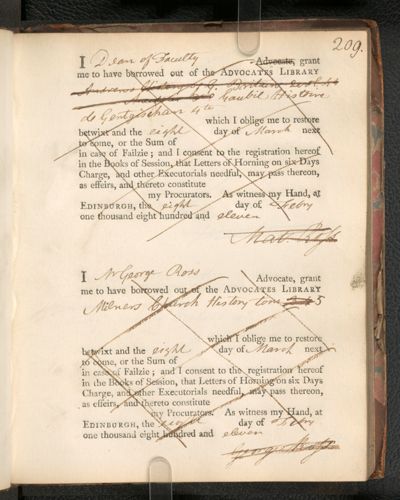 209.
I Dean of Faculty Advocate, grant
me to have borrowed out of the ADVOCATES LIBRARY
Andrews History of G. Britain
Gaubil Histoire
de Gentchiscan 4to
betwixt and the eight which I oblige me to restore
day of March next
to come, or the Sum of
in case of Failzie; and I consent to the registration hereof
in the Books of Session, that Letters of Horning on six Days
Charge, and other Executorials needful, may pass thereon,
as effeirs, and thereto constitute
my Procurators. As witness my Hand, at
EDINBURGH, the eight day of Febry
one thousand eight hundred and eleven
Mat. Ross
I Mr George Ross Advocate, grant
me to have borrowed out of the ADVOCATES LIBRARY
Milners Church History tom 5
which I oblige me to restore
betwixt and the eight day of March next
to come, or the Sum of
in case of Failzie; and I consent to the registration hereof
in the Books of Session, that Letters of Horning on six Days
Charge, and other Executorials needful, may pass thereon,
as effeirs, and thereto constitute
my Procurators. As witness my Hand, at
EDINBURGH, the eight day of Febry
one thousand eight hundred and eleven
George Ross